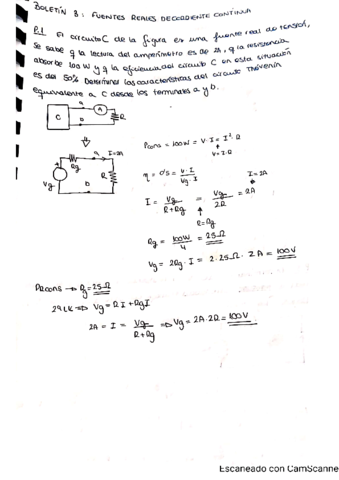 BOLETÍN 3: FUENTES REALES DE CORRIENTE CONTINUA
P.1. El circuito C de la figura es una fuente real de tensión,
se sabe q la lectura del amperímetro es de 2A, q la resistencia
absorbe 100W y q la eficiencia del circuito C en esta situación
es del 50%. Determinar las características del circuito Thévenin
equivalente a C desde los terminales a y b.
C
a
b
A
R
Pcons = 100W = V·I = I²·R
V=I·R
a
I=2A
Rg
R
Vg
b
η = 0'5 = V·I / Vg·I
I = Vg / R+Rg = Vg / 2R = 2A
I=2A
R=Rg
Rg = 100W / 4 = 25Ω
Vg = 2Rg·I = 2·25Ω·2A = 100V
→ Rg=25Ω
2ªLK ⇒ Vg = RI+RgI
2A = I = Vg / R+Rg ⇒ Vg = 2A·2R = 100V
Escaneado con CamScanner